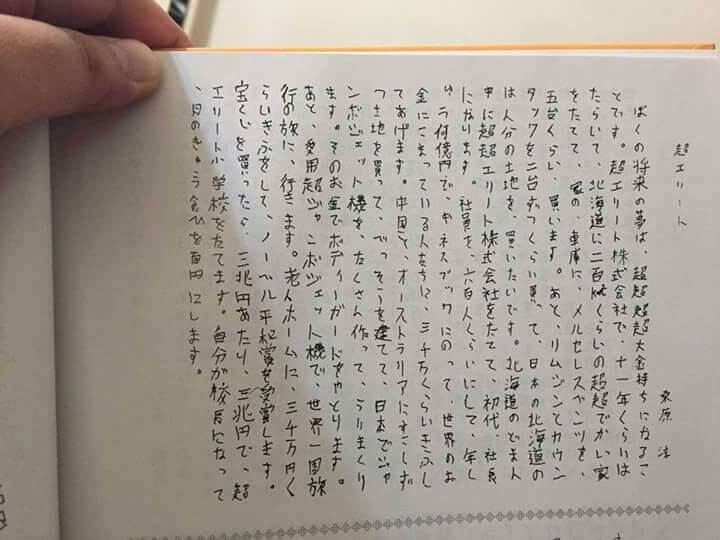 超エリート
栗原 注
ぼくの将来の夢は、超超超超大金持ちになるこ
とです。超エリート株式会社で、十一年くらいは
たらいて、北海道に二百㎢くらいの超超でかい家
をたてて、家の、車庫に、メルセレスベンツを、
五台くらい、買います。あと、リムジンとカウン
タックを二台ずつくらい買って、日本の北海道の
は人分の土地を、買いたいです。北海道のどま人
中に超超エリート株式会社をたてて、初代、社長
になります。社員を、六百人くらいにして、年し
ゅう何億円で、ギネスブックにのって、世界のお
金にこまっている人たちに、三千万くらいきふし
てあげます。中国と、オーストラリアにすこしず
つ土地を買って、べっそうを建てて、日本でジャ
ンボジェット機を、たくさん作って、うりまくり
ます。そのお金でボディーガードをやとります。
あと、愛用超ジャンボジェット機で、世界一周旅
行の旅に、行きます。老人ホームに、三千万円く
らいきふをして、ノーベル平和賞を受賞します。
宝くじを買ったら、三兆円あたり、三兆円で、超
エリート小学校をたてます。自分が校長になって
、月のきゅう食ひを百円にします。